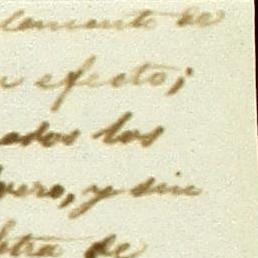 lamento de
efecto;
ados los
pero, y sin
letra de